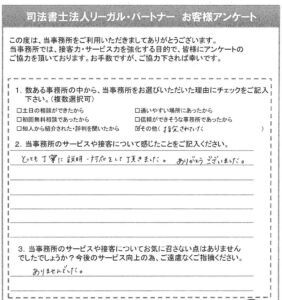 司法書士法人リーガル・パートナー お客様アンケート
この度は、当事務所をご利用いただきましてありがとうございます。
当事務所では、接客力・サービス力を強化する目的で、皆様にアンケートの
ご協力を頂いております。お手数ですが、ご協力下されば幸いです。
1. 数ある事務所の中から、当事務所をお選びいただいた理由にチェックをご記入
下さい。(複数選択可)
□土日の相談ができたから □通いやすい場所にあったから
□初回無料相談であったから □信頼ができそうな事務所であったから
□知人から紹介された・評判を聞いたから ☑その他(
2. 当事務所のサービスや接客について感じたことをご記入ください。
とても丁寧に説明・対応をして頂きました。ありがとうございました。
3. 当事務所のサービスや接客についてお気に召さない点はありません
でしたでしょうか?今後のサービス向上の為、ご遠慮なくご指摘ください。
ありませんでした。